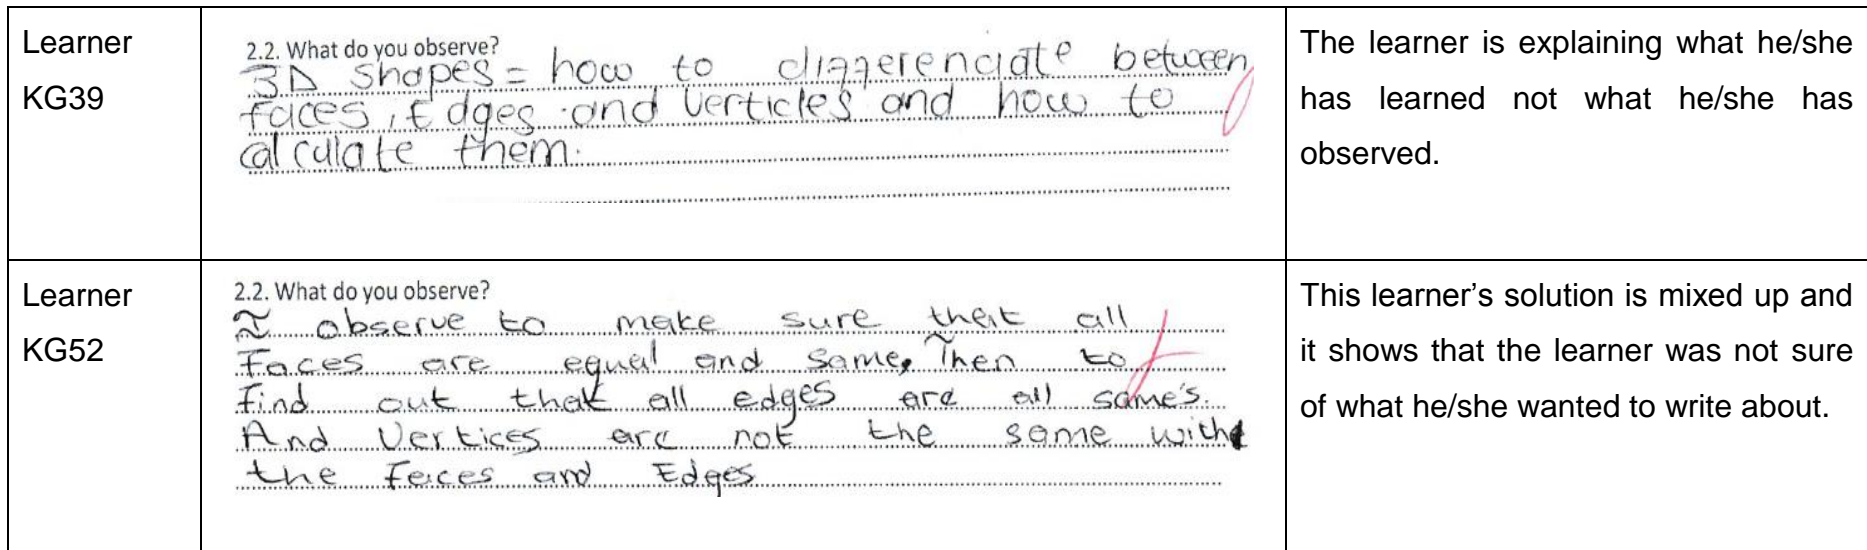 Learner
KG39
2.2. What do you observe?
3D shapes = how to differenciate between
faces, Edges and Verticles and how to
calculate them.
The learner is explaining what he/she
has learned not what he/she has
observed.
Learner
KG52
2.2. What do you observe?
I observe to make sure that all
Faces are equal and same, Then to
find out that all edges are all same's.
And Vertices are not the same with
the Feces and Edges
This learner's solution is mixed up and
it shows that the learner was not sure
of what he/she wanted to write about.